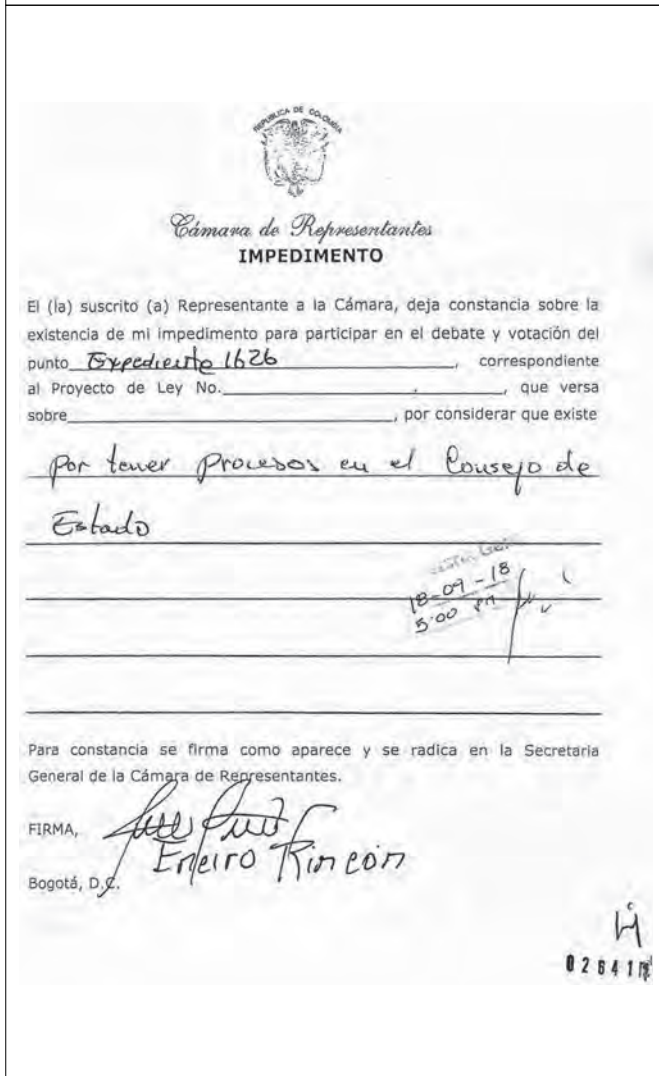 REPUBLICA DE COLOMBIA
Cámara de Representantes
IMPEDIMENTO
El (la) suscrito (a) Representante a la Cámara, deja constancia sobre la
existencia de mi impedimento para participar en el debate y votación del
punto Expediente 1626, correspondiente
al Proyecto de Ley No. , que versa
sobre , por considerar que existe
por tener procesos en el Consejo de
Estado
18-09-18
5:00 PM
Para constancia se firma como aparece y se radica en la Secretaria
General de la Cámara de Representantes.
FIRMA,
Eneiro Rincón
Bogotá, D.C.